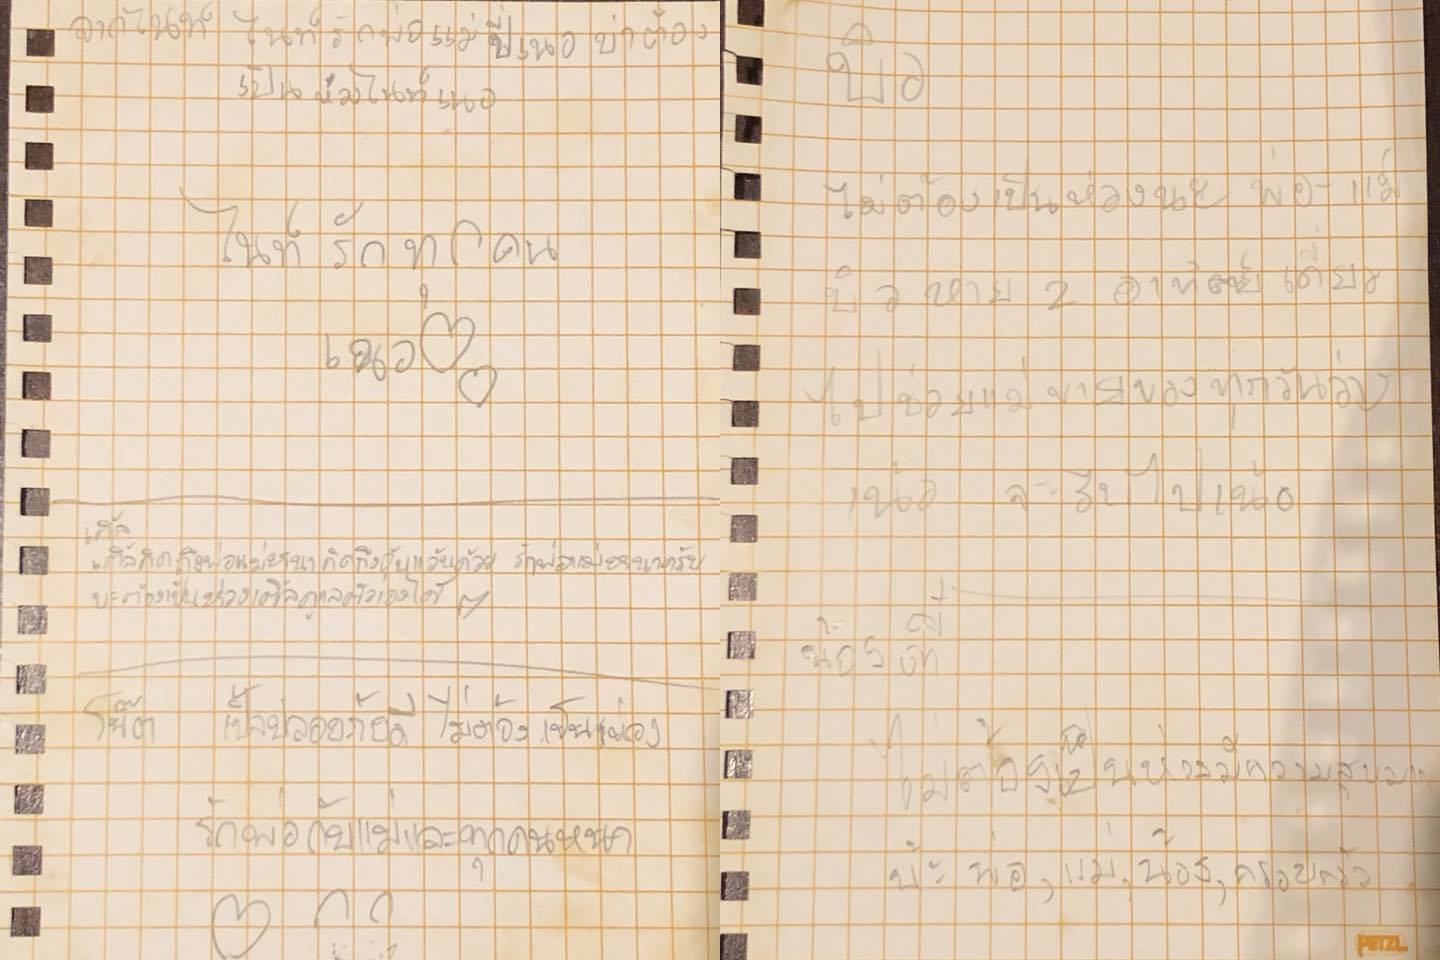 จากไนท์ ไนท์รักพ่อแม่ ปี่เนอ บ่าต้อง
เป็นห่วงไนท์เนอ
ไนท์ รัก ทุกคน
เนอ
เติ้ล
เติ้ลคิดถึงพ่อแม่ คิดถึง ด้วย รักพ่อแม่ ครับ
บะต้องเป็นห่วงเติ้ลดูแลตัวเองได้
โน๊ต ปลอยภัยดี ไม่ต้องเป็นห่วง
รักพ่อกับแม่และทุกคนหนา
บิว
ไม่ต้องเป็นห่วงนะ พ่อ-แม่
บิวหาย 2 อาทิตย์เดี๋ยว
ไปช่วยแม่ขายของทุกวัน
เน้อ จะรีบไปเน้อ
น้อง
ไม่ต้องเป็นห่วงมีความสุข
พ่อ, แม่, น้อง, ครอบครัว
PETZL